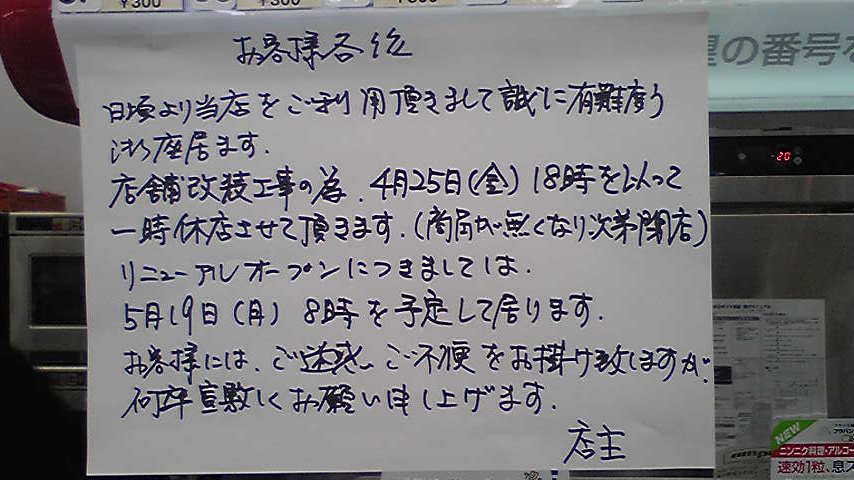 ¥300
¥300
望の番号を
-20
お客様各位
日頃より当店をご利用頂きまして誠に有難度う
御座居ます.
店舗改装工事の為. 4月25日(金) 18時を以って
一時休店させて頂きます.(商品が無くなり次第閉店)
リニューアルオープンにつきましては.
5月19日(月) 8時を予定して居ります.
お客様には、ご迷惑、ご不便をお掛け致しますが、
何卒宜敷しくお願い申し上げます.
店主
NEW
ニンニク料理・アルコー
速効1粒、息ス